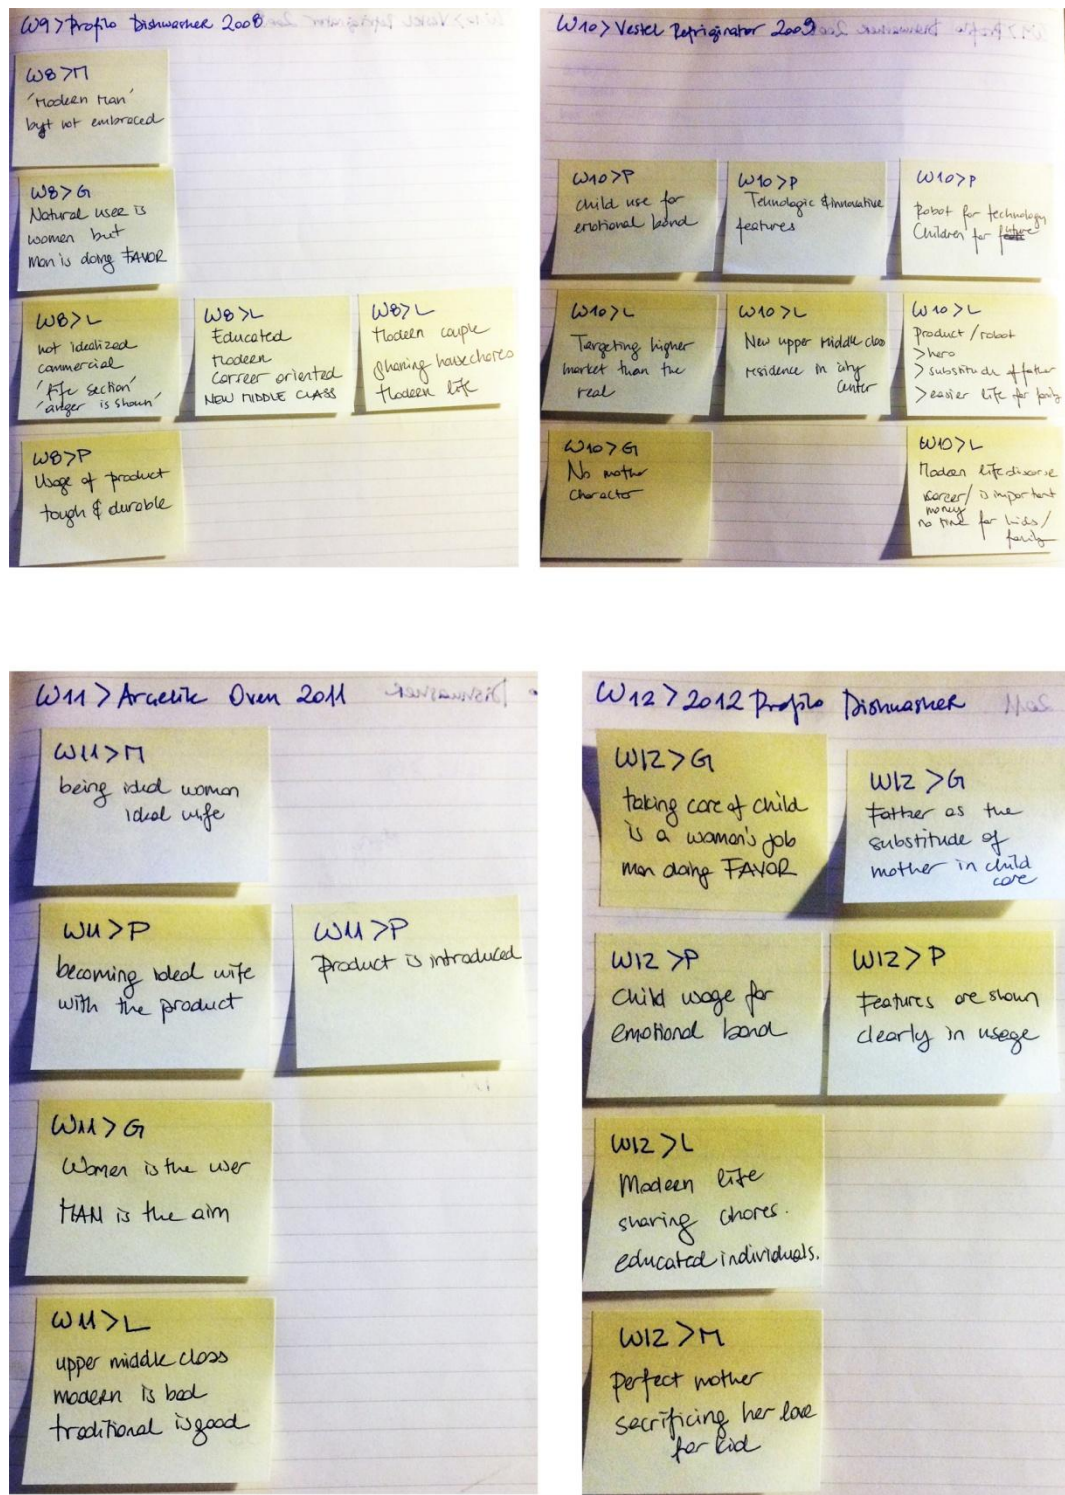 W9 > Profilo Dishwasher 2008
W8 > M
'Modern Man'
byt not embraced
W8 > G
Natural user is
women but
man is doing FAVOR
W8 > L
not idealized
commercial
'life section'
'anger is shown'
W8 > L
Educated
modern
Carreer oriented
NEW MIDDLE CLASS
W8 > L
Modern couple
sharing housechores
Modern life
W8 > P
Usage of product
tough & durable
W10 > Vestel Refriginator 2009
W10 > P
child use for
emotional bond
W10 > P
Tehnologic & innovative
features
W10 > P
Robot for technology
Children for future
W10 > L
Targeting higher
market than the
real
W10 > L
New upper middle class
residence in city
center
W10 > L
product / robot
> hero
> substitude of father
> easier life for family
W10 > G
No mother
character
W10 > L
Modern life discorse
career / is important
money
no time for kids /
family
W11 > Arcelik Oven 2011
W11 > M
being ideal woman
ideal wife
W11 > P
becoming ideal wife
with the product
W11 > P
Product is introduced
W11 > G
Women is the user
MAN is the aim
W11 > L
upper middle class
modern is bad
traditional is good
W12 > 2012 Profilo Dishwasher
W12 > G
taking care of child
is a woman's job
man doing FAVOR
W12 > G
Father as the
substitude of
mother in child
care
W12 > P
Child usage for
emotional bond
W12 > P
Features are shown
clearly in usage
W12 > L
Modern life
sharing chores.
educated individuals.
W12 > M
perfect mother
secrificing her love
for kid